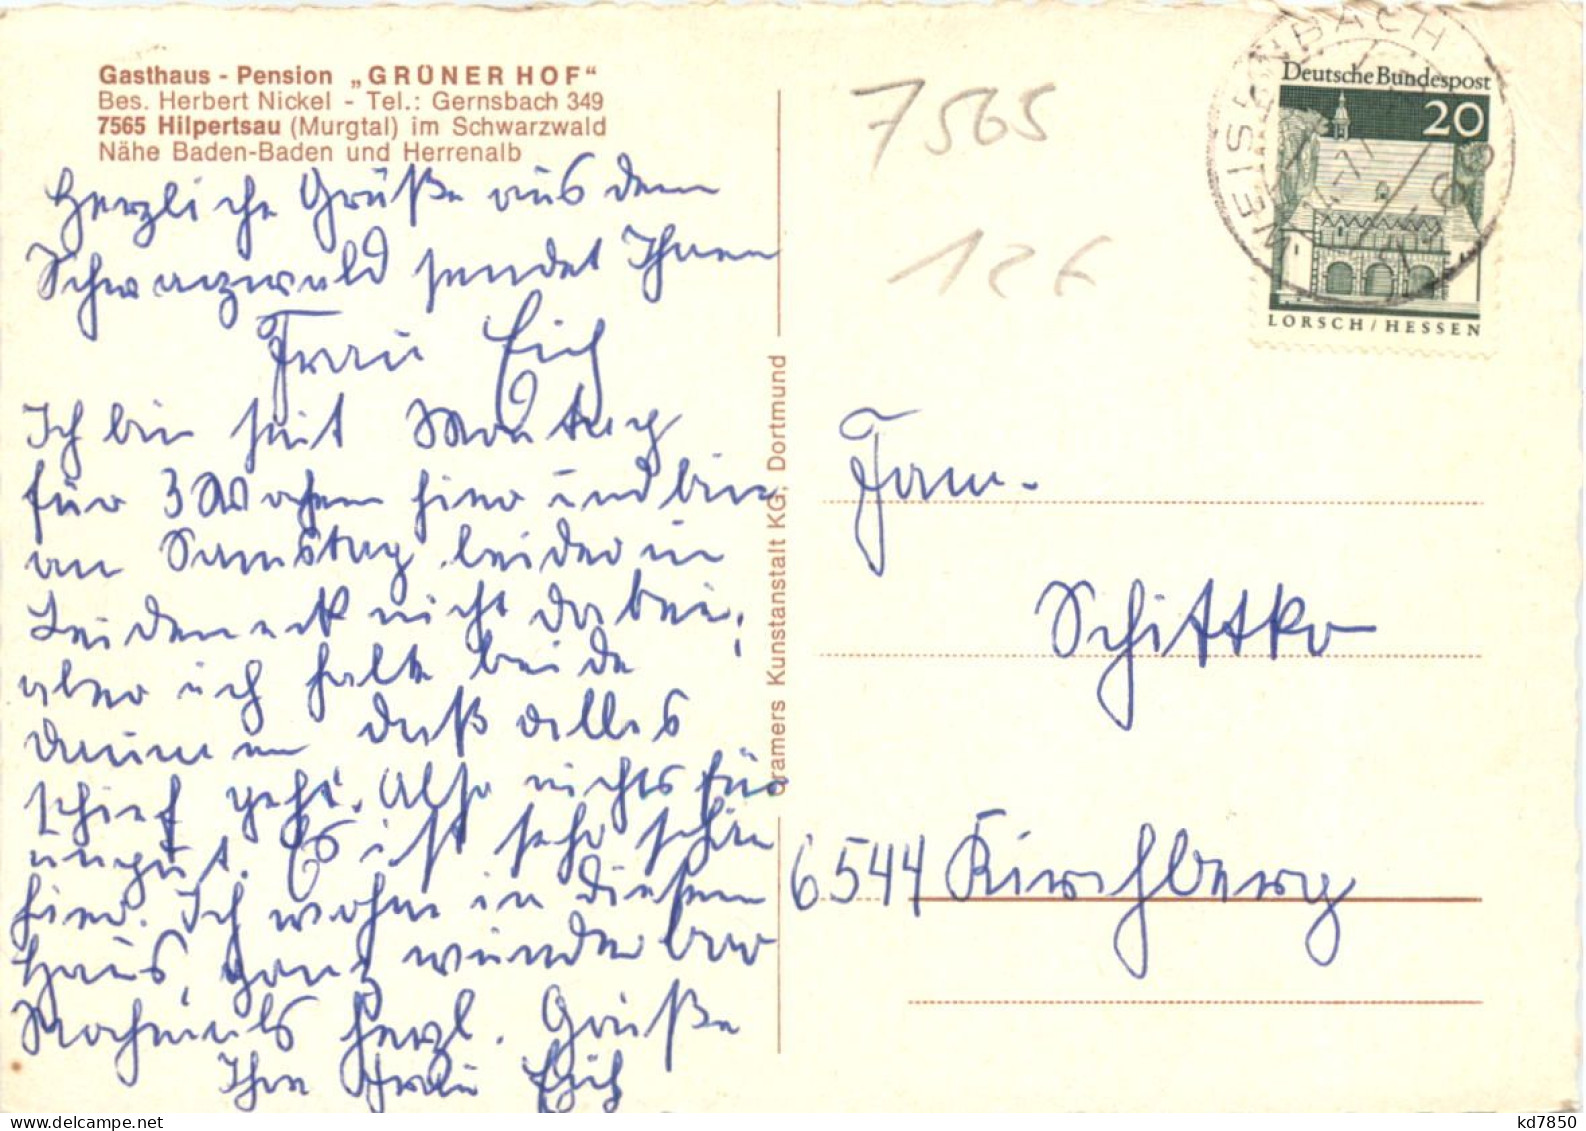 Gasthaus - Pension „GRÜNER HOF“
Bes. Herbert Nickel - Tel.: Gernsbach 349
7565 Hilpertsau (Murgtal) im Schwarzwald
Nähe Baden-Baden und Herrenalb
Herzliche Grüße aus dem
Schwarzwald sendet Ihnen
Frau Eich
Ich bin seit Montag
für 3 Wochen hier und bin
am Samstag leider in
Leideneck nicht dabei,
aber ich halte beide
Daumen daß alles
schief geht. Also nichts für
ungut. Es ist sehr schön
hier. Ich wohne in diesem
Haus, ganz wunderbar
Nochmals herzl. Grüße
Ihre Frau Eich
Cramers Kunstanstalt KG, Dortmund
7565
12 F
WEISENBACH
Deutsche Bundespost
20
LORSCH / HESSEN
Fam.
Schittko
6544 Kirchberg
kd7850